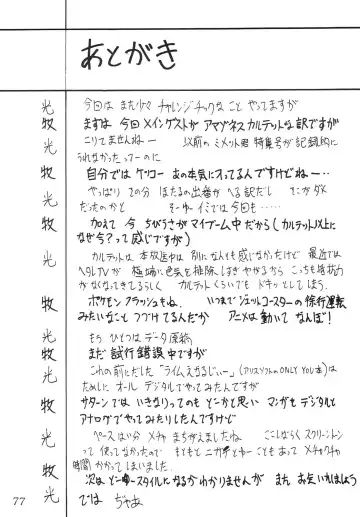 あとがき
光 今回は また少々 チャレンジチックなこと やってますが
牧 まずは 今回 メインゲストが アマゾネスカルテットな訳ですが
光 こりてませんねー 以前の ミメット君 特集号が 記録的に
うれなかったってーのに
牧 自分では ケッコー あの本気にオってるんですけどねー…
光 やっぱり その分 ほたるの出番が へる訳だし そこがダメ
だったのかと そーゆーイミでは今回も……
牧 加えて 今 ちびうさがマイブーム中だから(カルテット以上に
なぜ今?って感じですが)
光 カルテットは 本放送中は 別になんとも感じなかったけど 最近では
ヘタレTVが 極端に色気を排除しすぎやがるから こっちも抵抗力
がなくなってきてるらしく カルテットくらいでも ドキッとしてしまう
牧 ポケモン フラッシュもね、 いつまでジェットコースターの徐行運転
みたいなこと つづけてるんだか アニメは動いて なんぼ!
光 もう ひとつは データ原稿
牧 まだ 試行錯誤 中ですが
光 これの前にだした 「ライムえなるじぃー」(アリスソフトのONLY YOU本)は
ためしに オール デジタルでやってみたんですが
牧 サターンでは いきなりってのも どーかと思い マンガも デジタルと
アナログでやってみたりしたんですけど
光 ペースはい分 メチャ まちがえましたね ここしばらく スクリーントーン
って 使ってなかったので もともと ニガ手とゆーことも あって メチャクチャ
牧 時間 かかってしまいました
次は どーゆースタイルになるかわかりませんが また お会いしましょう
光 では じゃあ
77